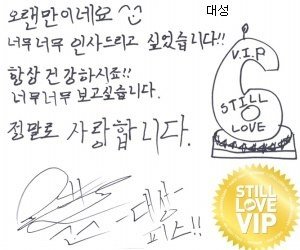 오랜만이네요
대성
너무너무 인사드리고 싶었습니다!!
항상 건강하시죠!!
너무너무 보고싶습니다.
정말로 사랑합니다.
V.I.P
STILL
LOVE
-대성-
피쓰!!
STILL
LOVE
VIP